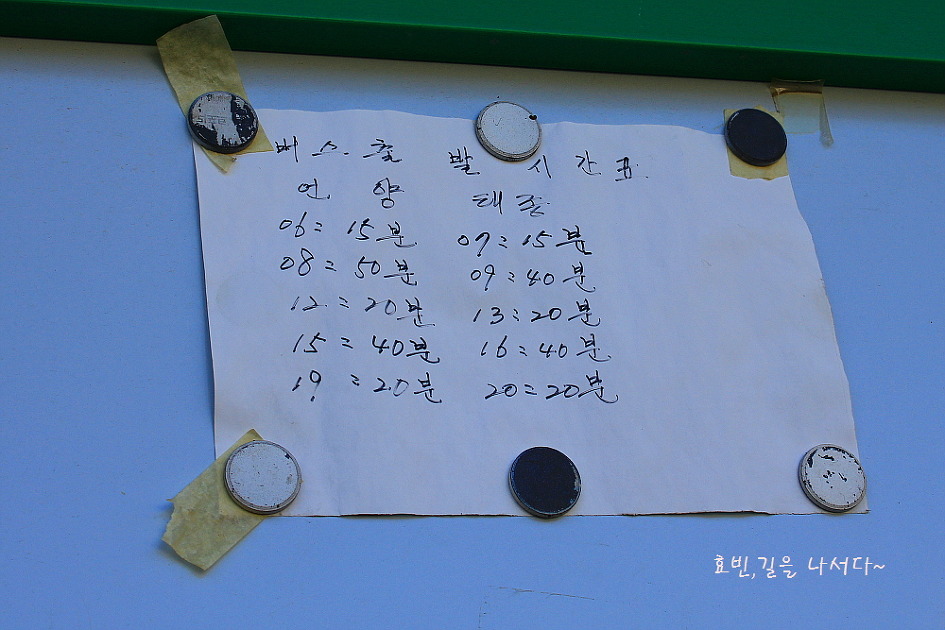 버스 출발 시간표.
언양 태존
06:15분 07:15분
08:50분 09:40분
12:20분 13:20분
15:40분 16:40분
19:20분 20:20분
효빈,길을 나서다~